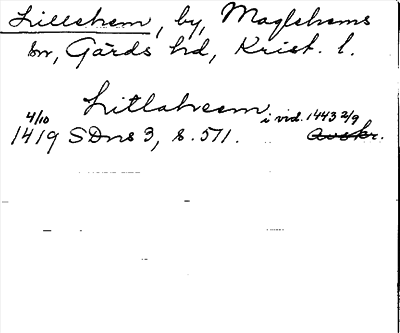 Lillehem, by, Maglehems
sn, Gärds hd, Krist. l.
Litlaheem i vid. 1443 2/9
4/10
1419 SDns 3, s. 571. Avskr.